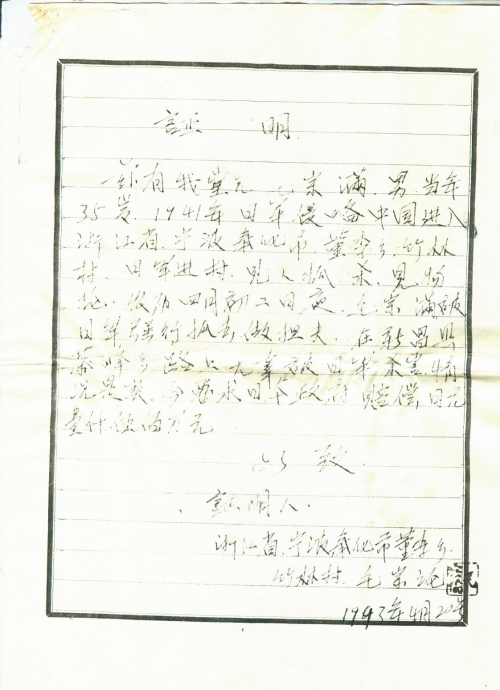 証明
兹有我堂兄毛宗满男.当年
35岁.1941年日军侵略中国进入
浙江省.宁波奉化市董李乡.竹林
村.日军进村.见人抓杀.见物
抢.农历四月初二日夜.毛宗满被
日军强行抓去做担夫.在新昌
乡路口无辜被日军杀害.情
况是实.今要求日本政府赔偿.日元
伍佰万元
此致
証明人.
浙江省.宁波奉化市董李乡.
竹林村.毛宗
1993年4月20号